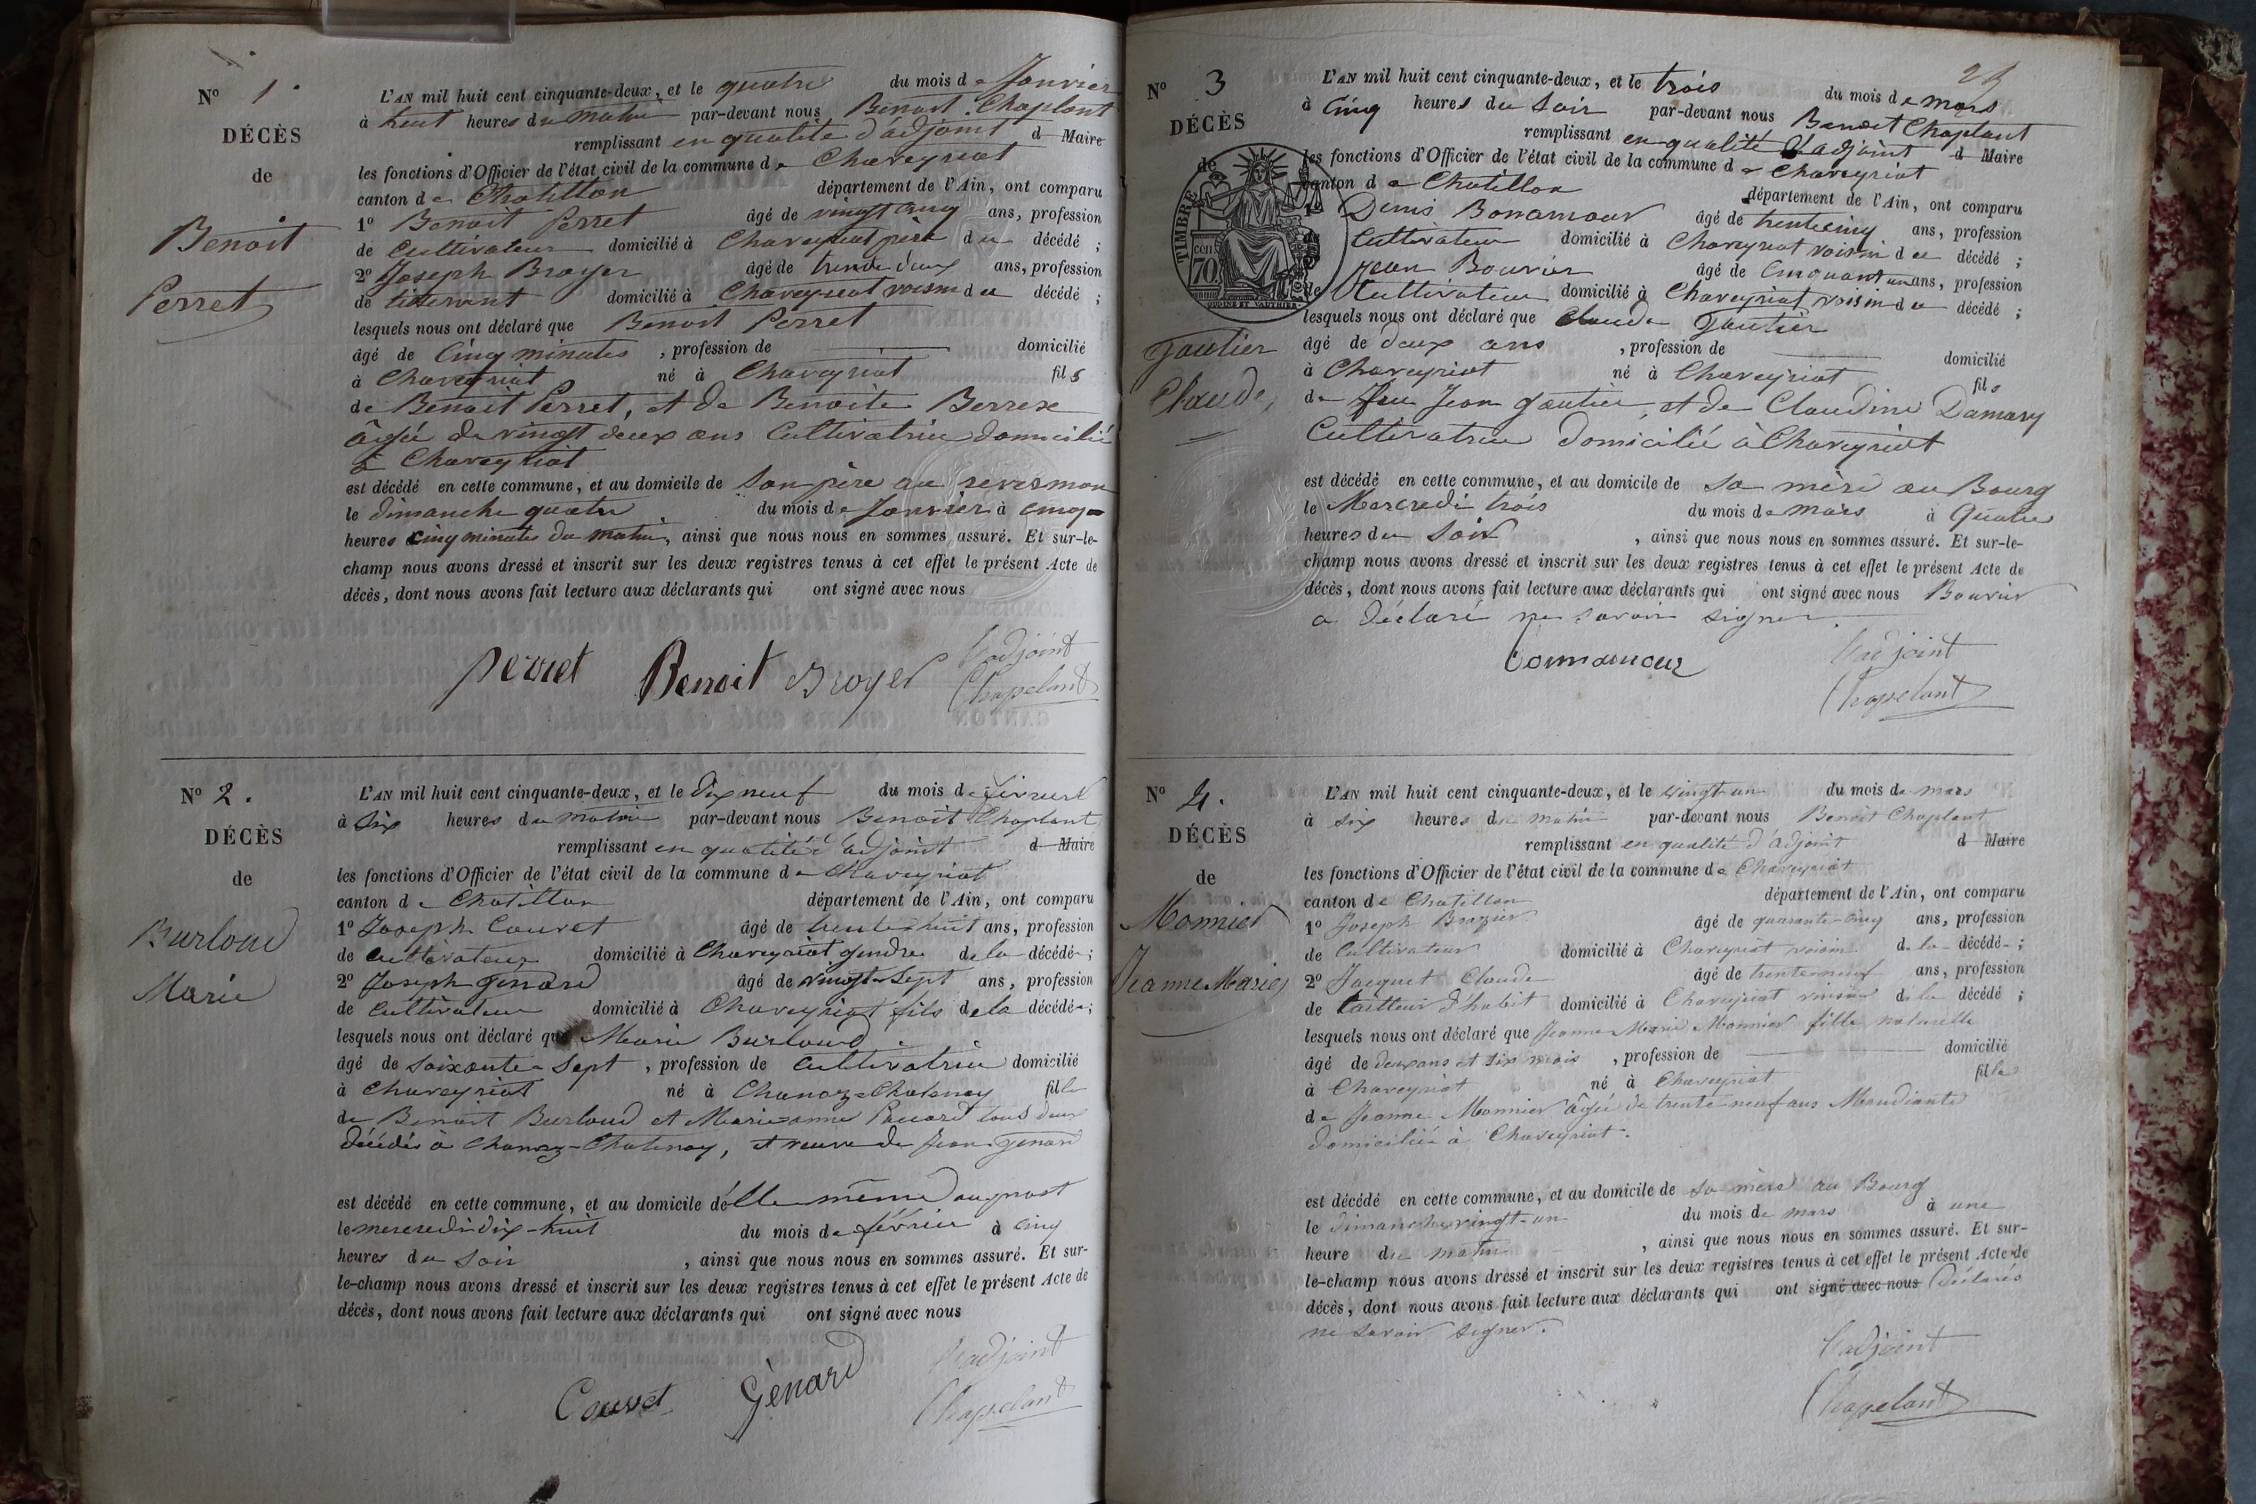 N° 1.
DÉCÈS
de
Benoit
Perret
L'AN mil huit cent cinquante-deux, et le quatre du mois de Janvier
à huit heures du matin par-devant nous Benoit Chaplant
remplissant en qualité d'adjoint d Maire
les fonctions d'Officier de l'état civil de la commune de Chaveyriat
canton de Chatillon département de l'Ain, ont comparu
1° Benoit Perret âgé de vingt cinq ans, profession
de Cultivateur domicilié à Chaveyriat père du décédé ;
2° Joseph Broyer âgé de trente deux ans, profession
de tisserant domicilié à Chaveyriat voisin du décédé ;
lesquels nous ont déclaré que Benoit Perret
âgé de Cinq minutes , profession de domicilié
à Chaveyriat né à Chaveyriat fils
de Benoit Perret, et de Benoite
âgée de vingt deux ans Cultivatrice domicilié
à Chaveyriat
est décédé en cette commune, et au domicile de son père au
le dimanche quatre du mois de Janvier à cinq
heures cinq minutes du matin, ainsi que nous nous en sommes assuré. Et sur-le-
champ nous avons dressé et inscrit sur les deux registres tenus à cet effet le présent Acte de
décès, dont nous avons fait lecture aux déclarants qui ont signé avec nous
Perret Benoit Broyer L'adjoint
Chapelant
N° 2.
DÉCÈS
de
Burloud
Marie
L'AN mil huit cent cinquante-deux, et le dix neuf du mois de février
à six heures du matin par-devant nous Benoit Chaplant
remplissant en qualité d'adjoint d Maire
les fonctions d'Officier de l'état civil de la commune de Chaveyriat
canton de Chatillon département de l'Ain, ont comparu
1° Joseph Couvet âgé de trente huit ans, profession
de Cultivateur domicilié à Chaveyriat gendre de la décédée ;
2° Joseph Genard âgé de vingt-sept ans, profession
de Cultivateur domicilié à Chaveyriat fils de la décédée ;
lesquels nous ont déclaré que Marie Burloud
âgé de soixante-sept , profession de Cultivatrice domicilié
à Chaveyriat né à Chanoz-Chatenay fille
de Benoit Burloud et Marie-anne tous deux
décédés à Chanoz-Chatenay, et veuve de Jean Genard
est décédé en cette commune, et au domicile d'elle même
le mercredi dix-huit du mois de février à cinq
heures du soir , ainsi que nous nous en sommes assuré. Et sur-
le-champ nous avons dressé et inscrit sur les deux registres tenus à cet effet le présent Acte de
décès, dont nous avons fait lecture aux déclarants qui ont signé avec nous
Couvet Génard L'adjoint
Chapelant
N° 3
DÉCÈS
de
TIMBRE
70
Gautier
Claude
L'AN mil huit cent cinquante-deux, et le trois du mois de mars
à Cinq heures du soir par-devant nous Benoit Chaplant
remplissant en qualité d'adjoint d Maire
les fonctions d'Officier de l'état civil de la commune de Chaveyriat
canton de Chatillon département de l'Ain, ont comparu
1° Denis Bonamour âgé de trente cinq ans, profession
de Cultivateur domicilié à Chaveyriat voisin du décédé ;
Jean Bouvier âgé de Cinquante un ans, profession
de Cultivateur domicilié à Chaveyriat voisin du décédé ;
lesquels nous ont déclaré que Claude Gautier
âgé de deux ans , profession de domicilié
à Chaveyriat né à Chaveyriat fils
de feu Jean Gautier, et de Claudine Damary
Cultivatrice domicilié à Chaveyriat
est décédé en cette commune, et au domicile de sa mère au Bourg
le Mercredi trois du mois de mars à Quatre
heures du soir , ainsi que nous nous en sommes assuré. Et sur-le-
champ nous avons dressé et inscrit sur les deux registres tenus à cet effet le présent Acte de
décès, dont nous avons fait lecture aux déclarants qui ont signé avec nous Bouvier
a déclaré ne savoir signer.
Bonnamour L'adjoint
Chapelant
N° 4.
DÉCÈS
de
Monnier
Jeanne Marie
L'AN mil huit cent cinquante-deux, et le vingt-un du mois de mars
à six heures du matin par-devant nous Benoit Chaplant
remplissant en qualité d'adjoint d Maire
les fonctions d'Officier de l'état civil de la commune de Chaveyriat
canton de Chatillon département de l'Ain, ont comparu
1° Joseph Brazier âgé de quarante-cinq ans, profession
de Cultivateur domicilié à Chaveyriat voisin de la décédée ;
2° Jacquet Claude âgé de trente neuf ans, profession
de tailleur d'habit domicilié à Chaveyriat voisin de la décédé ;
lesquels nous ont déclaré que Jeanne Marie Monnier fille naturelle
âgé de deux ans et six mois , profession de domicilié
à Chaveyriat né à Chaveyriat fille
de Jeanne Monnier âgée de trente-neuf ans Mendiante
domiciliée à Chaveyriat.
est décédé en cette commune, et au domicile de sa mère au Bourg
le dimanche vingt-un du mois de mars à une
heure du matin , ainsi que nous nous en sommes assuré. Et sur-
le-champ nous avons dressé et inscrit sur les deux registres tenus à cet effet le présent Acte de
décès, dont nous avons fait lecture aux déclarants qui ont signé avec nous déclarés
ne savoir signer.
L'adjoint
Chapelant